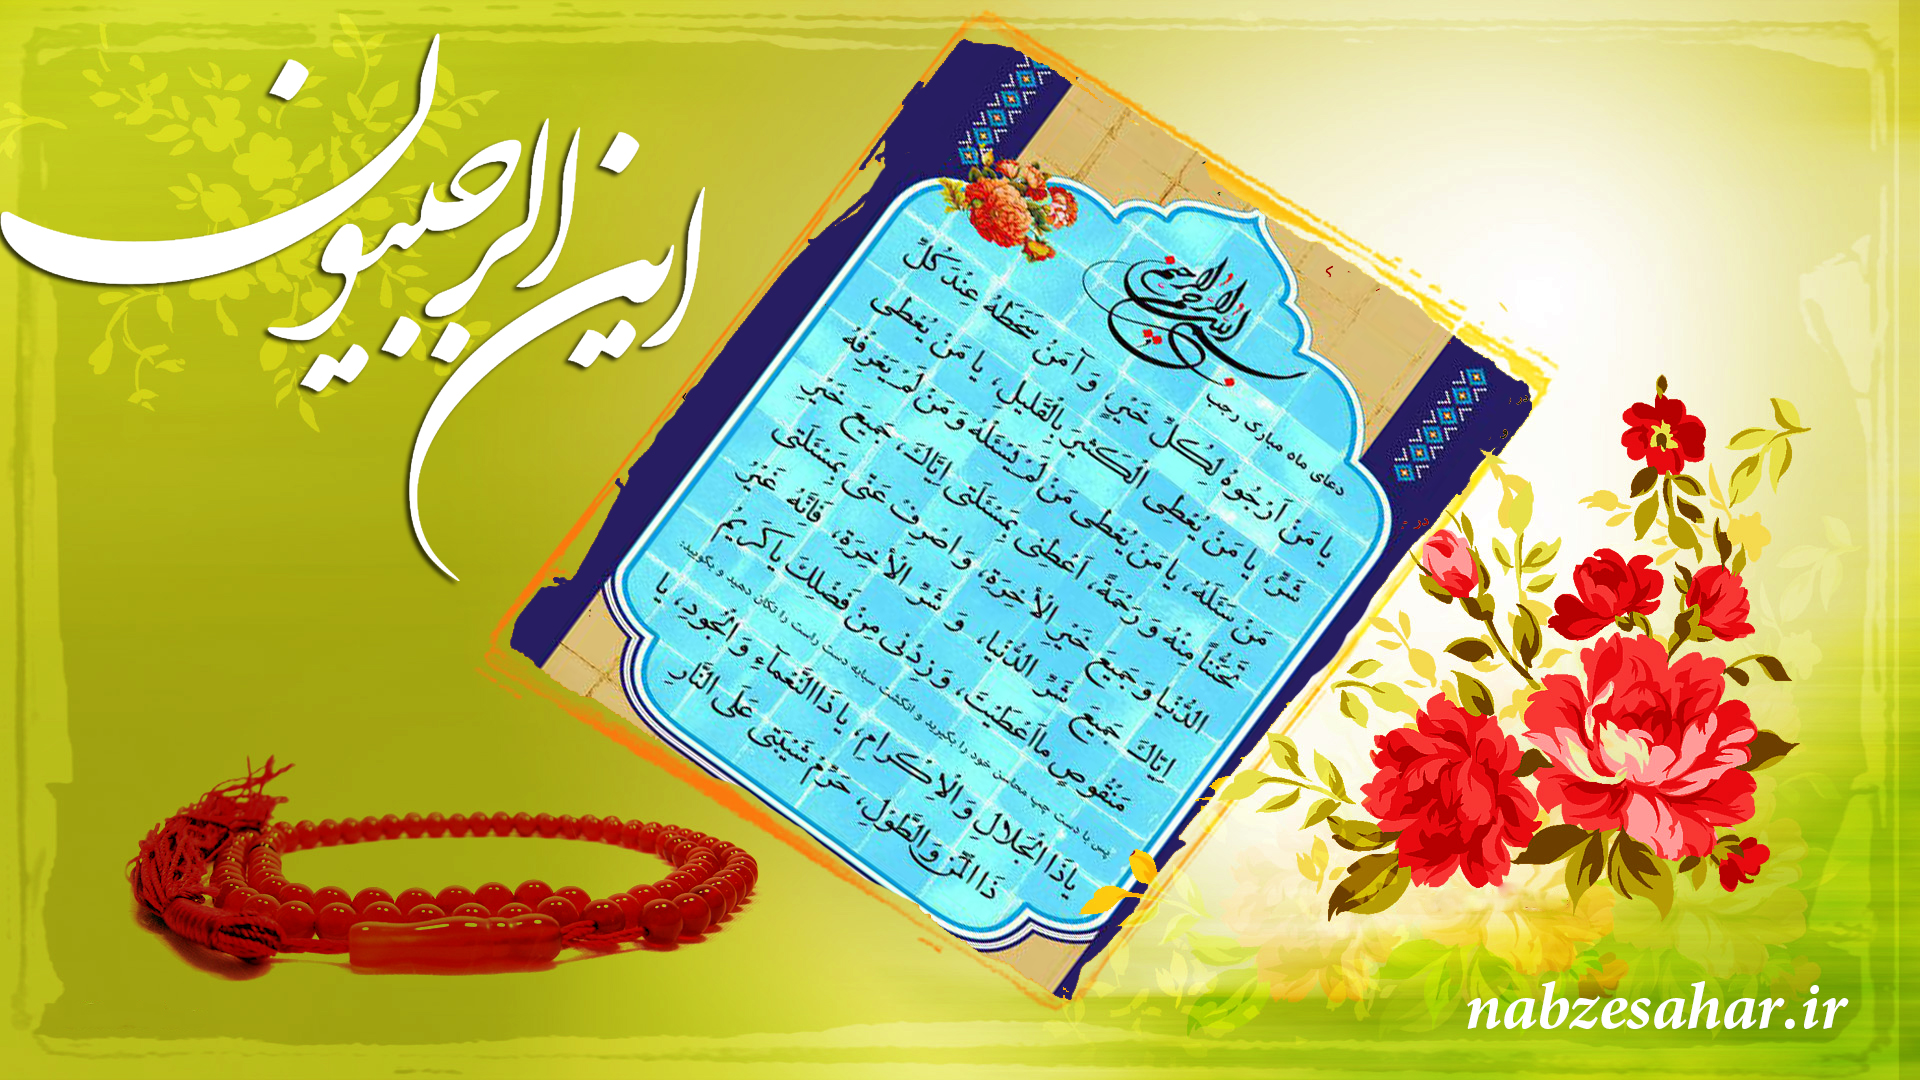 این الرجبیون
بسم الله الرحمن الرحیم
دعای ماه مبارک رجب
یا مَنْ اَرْجُوهُ لِکُلِّ خَیْرٍ، وَ آمَنُ سَخَطَهُ عِنْدَ کُلِّ
شَرٍّ، یا مَنْ یُعْطِی الْکَثیرَ بِالْقَلیلِ، یا مَنْ یُعْطی
مَنْ سَئَلَهُ، یا مَنْ یُعْطی مَنْ لَمْ یَسْئَلْهُ وَ مَنْ لَمْ یَعْرِفْهُ
تَحَنُّناً مِنْهُ وَ رَحْمَةً، اَعْطِنی بِمَسْئَلَتی اِیّاکَ، جَمیعَ خَیْرِ
الدُّنْیا وَ جَمیعَ خَیْرِ الْأخِرَةِ، وَ اصْرِفْ عَنّی بِمَسْئَلَتی
اِیّاکَ جَمیعَ شَرِّ الدُّنْیا، وَ شَرِّ الْأخِرَةِ، فَاِنَّهُ غَیْرُ
مَنْقُوصٍ ما اَعْطَیْتَ، وَ زِدْنی مِنْ فَضْلِکَ یا کَریمُ
پس با دست چپ محاسن خود را بگیرید و انگشت سبابه دست راست را تکان دهید و بگویید:
یا ذَا الْجَلالِ وَ الْاِکْرامِ، یا ذَا النَّعْمآءِ وَ الْجُودِ، یا
ذَا الْمَنِّ وَ الطَّوْلِ، حَرِّمْ شَیْبَتی عَلَی النّارِ
nabzesahar.ir